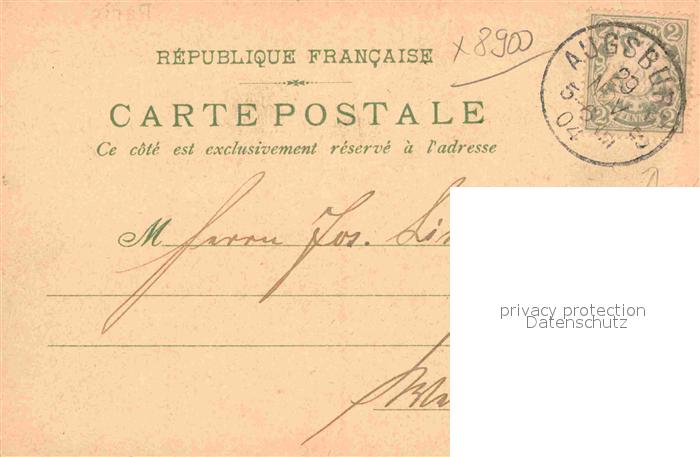 Paris
x 8900
RÉPUBLIQUE FRANÇAISE
CARTE POSTALE
Ce côté est exclusivement réservé à l'adresse
AUGSBURG
29
04
2 2
2 PFENNIG 2
M Herrn Jos.
privacy protection
Datenschutz